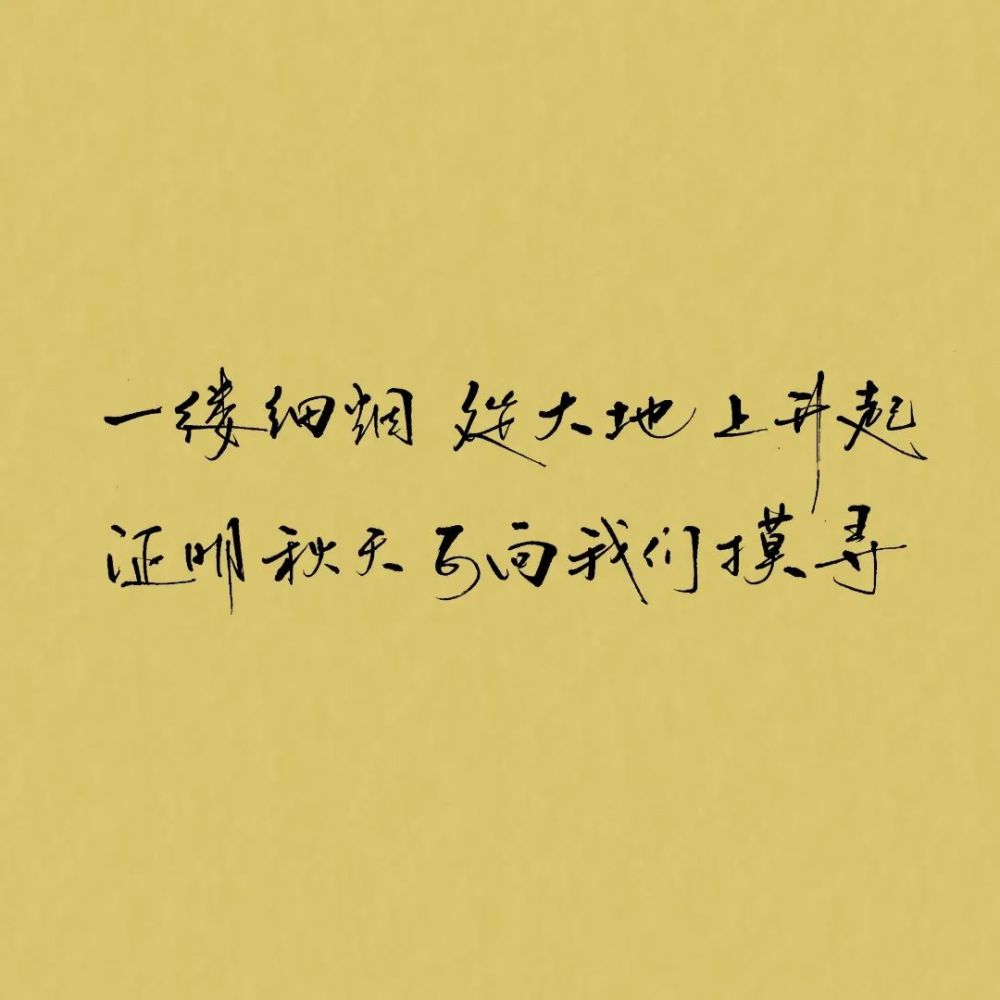 一缕细烟 从大地上升起
证明秋天可向我们摸寻